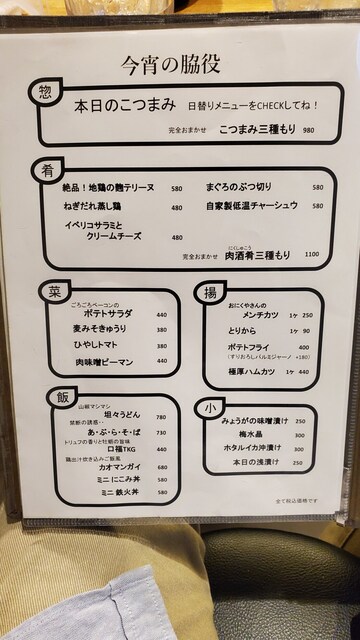 今宵の脇役
惣
本日のこつまみ 日替りメニューをCHECKしてね！
完全おまかせ こつまみ三種もり 980
肴
絶品！地鶏の麴テリーヌ 580
まぐろのぶつ切り 580
ねぎだれ蒸し鶏 480
自家製低温チャーシュウ 580
イベリコサラミと
クリームチーズ 480
にくしゅこう
完全おまかせ 肉酒肴三種もり 1100
菜
ごろごろベーコンの
ポテトサラダ 440
麦みそきゅうり 380
ひやしトマト 380
肉味噌ピーマン 440
揚
おにくやさんの
メンチカツ 1ヶ 250
とりから 1ヶ 90
ポテトフライ 400
(すりおろしパルミジャーノ +180)
極厚ハムカツ 1ヶ 440
飯
山椒マシマシ
坦々うどん 780
禁断の誘惑‥
あ・ぶ・ら・そ・ば 730
トリュフの香りと牡蛎の旨味
口福TKG 440
鶏出汁炊き込みご飯風
カオマンガイ 680
ミニ にこみ丼 580
ミニ 鉄火丼 580
小
みょうがの味噌漬け 250
梅水晶 300
ホタルイカ沖漬け 300
本日の浅漬け 250
全て税込価格です